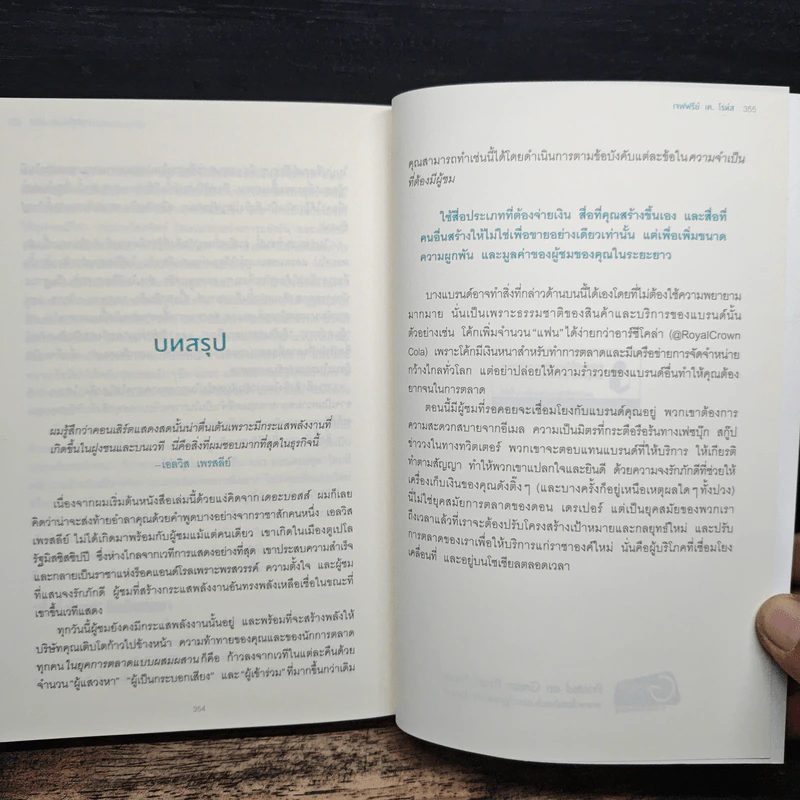 บทสรุป
ผมรู้สึกว่าคอนเสิร์ตแสดงสดนั้นน่าตื่นเต้นเพราะมีกระแสพลังงานที่
เกิดขึ้นในฝูงชนและบนเวที นี่คือสิ่งที่ผมชอบมากที่สุดในธุรกิจนี้
—เอลวิส เพรสลีย์
เนื่องจากผมเริ่มต้นหนังสือเล่มนี้ด้วยแง่คิดจาก เดอะบอสส์ ผมก็เลย
คิดว่าน่าจะส่งท้ายอำลาคุณด้วยคำพูดบางอย่างจากราชาสักคนหนึ่ง เอลวิส
เพรสลีย์ ไม่ได้เกิดมาพร้อมกับผู้ชมแม้แต่คนเดียว เขาเกิดในเมืองตูเปโล
รัฐมิสซิสซิปปี ซึ่งห่างไกลจากเวทีการแสดงอย่างที่สุด เขาประสบความสำเร็จ
และกลายเป็นราชาแห่งร็อคแอนด์โรลเพราะพรสวรรค์ ความตั้งใจ และผู้ชม
ที่แสนจงรักภักดี ผู้ชมที่สร้างกระแสพลังงานอันทรงพลังเหลือเชื่อในขณะที่
เขาขึ้นเวทีแสดง
ทุกวันนี้ผู้ชมยังคงมีกระแสพลังงานนั้นอยู่ และพร้อมที่จะสร้างพลังให้
บริษัทคุณเติบโตก้าวไปข้างหน้า ความท้าทายของคุณและของนักการตลาด
ทุกคน ในยุคการตลาดแบบผสมผสาน ก็คือ ก้าวลงจากเวทีในแต่ละคืนด้วย
จำนวน "ผู้แสวงหา" "ผู้เป็นกระบอกเสียง" และ "ผู้เข้าร่วม" ที่มากขึ้นกว่าเดิม
354
เจฟฟรีย์ เค. โรห์ส 355
คุณสามารถทำเช่นนี้ได้โดยดำเนินการตามข้อบังคับแต่ละข้อใน ความจำเป็น
ที่ต้องมีผู้ชม
ใช้สื่อประเภทที่ต้องจ่ายเงิน สื่อที่คุณสร้างขึ้นเอง และสื่อที่
คนอื่นสร้างให้ไม่ใช่เพื่อขายอย่างเดียวเท่านั้น แต่เพื่อเพิ่มขนาด
ความผูกพัน และมูลค่าของผู้ชมของคุณในระยะยาว
บางแบรนด์อาจทำสิ่งที่กล่าวด้านบนนี้ได้เองโดยที่ไม่ต้องใช้ความพยายาม
มากมาย นั่นเป็นเพราะธรรมชาติของสินค้าและบริการของแบรนด์นั้น
ตัวอย่างเช่น โค้กเพิ่มจำนวน "แฟน" ได้ง่ายกว่าอาร์ซีโคล่า (@RoyalCrown
Cola) เพราะโค้กมีเงินหนาสำหรับทำการตลาดและมีเครือข่ายการจัดจำหน่าย
กว้างไกลทั่วโลก แต่อย่าปล่อยให้ความร่ำรวยของแบรนด์อื่นทำให้คุณต้อง
ยากจนในการตลาด
ตอนนี้มีผู้ชมที่รอคอยจะเชื่อมโยงกับแบรนด์คุณอยู่ พวกเขาต้องการ
ความสะดวกสบายจากอีเมล ความเป็นมิตรที่กระตือรือร้นทางเฟซบุ๊ก สกู๊ป
ข่าววงในทางทวิตเตอร์ พวกเขาจะตอบแทนแบรนด์ที่ให้บริการ ให้เกียรติ
ทำตามสัญญา ทำให้พวกเขาแปลกใจและยินดี ด้วยความจงรักภักดีที่ช่วยให้
เครื่องเก็บเงินของคุณดังติ๊งๆ (และบางครั้งก็อยู่เหนือเหตุผลใดๆ ทั้งปวง)
นี่ไม่ใช่ยุคสมัยการตลาดของดอน เดรเปอร์ แต่เป็นยุคสมัยของพวกเรา
ถึงเวลาแล้วที่เราจะต้องปรับโครงสร้างเป้าหมายและกลยุทธ์ใหม่ และปรับ
การตลาดของเราเพื่อให้บริการแก่ราชาองค์ใหม่ นั่นคือผู้บริโภคที่เชื่อมโยง
เคลื่อนที่ และอยู่บนโซเชียลตลอดเวลา